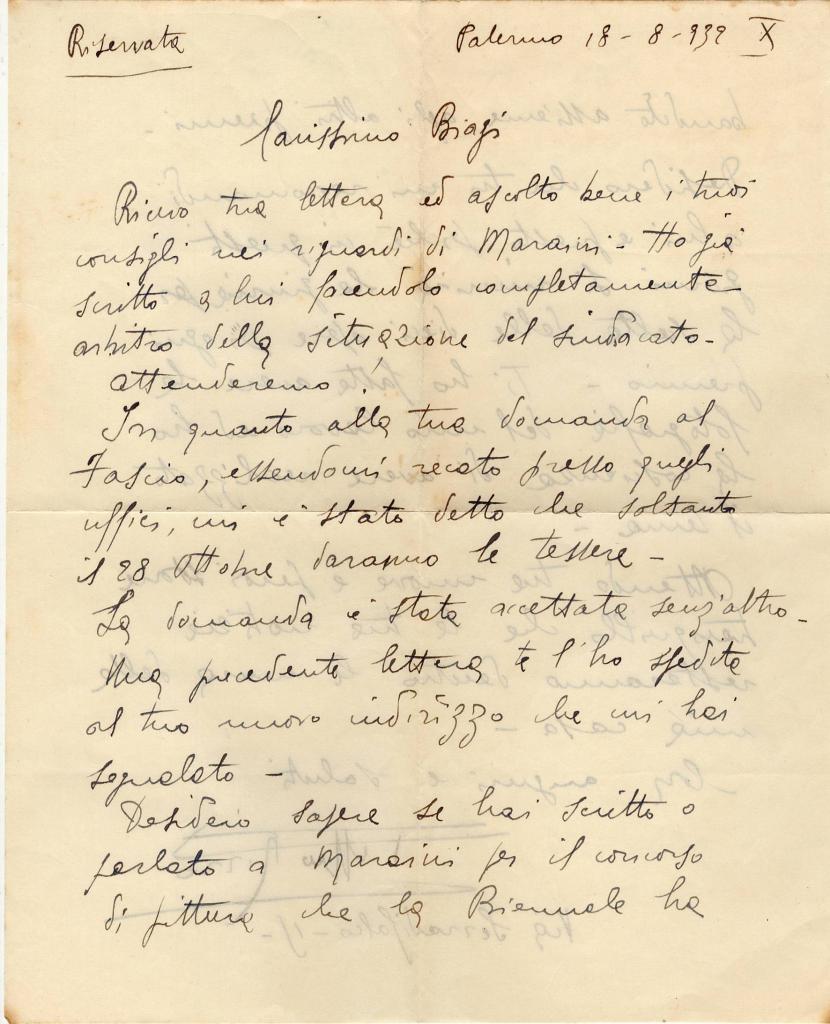 Riservata
Palermo 18-8-932 X
Carissimo Biagi
Ricevo tua lettera ed ascolto bene i tuoi
consigli nei riguardi di Maraini - Ho già
scritto a lui facendolo completamente
arbitro della situazione del sindacato -
attenderemo!
In quanto alla tua domanda al
Fascio, essendomi recato presso quegli
uffici, mi è stato detto che soltanto
il 28 Ottobre daranno le tessere -
La domanda è stata accettata senz'altro -
Una precedente lettera te l'ho spedita
al tuo nuovo indirizzo che mi hai
segnalato -
Desidero sapere se hai scritto o
parlato a Maraini per il concorso
di pittura che la Biennale ha